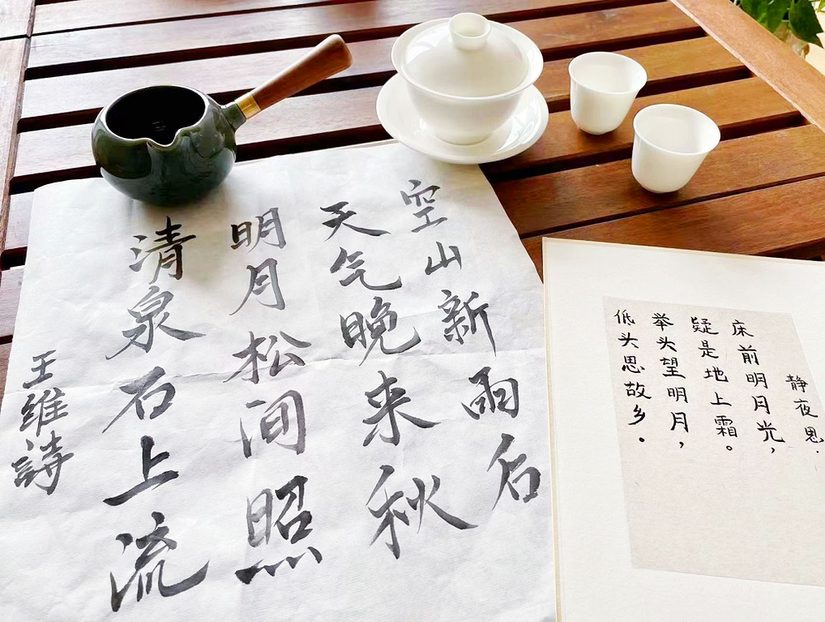 空山新雨后
天气晚来秋
明月松间照
清泉石上流
王维詩
静夜思.
床前明月光，
疑是地上霜。
举头望明月，
低头思故乡。